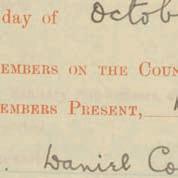 day of Octob
EMBERS ON THE COUN
EMBERS PRESENT,
. Daniel Co